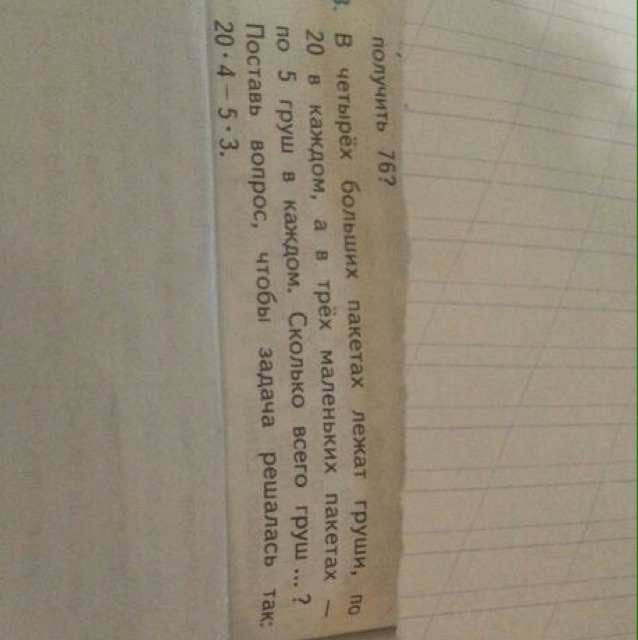 получить 76?
В четырёх больших пакетах лежат груши, по
20 в каждом, а в трёх маленьких пакетах —
по 5 груш в каждом. Сколько всего груш ... ?
Поставь вопрос, чтобы задача решалась так:
20 · 4 — 5 · 3.